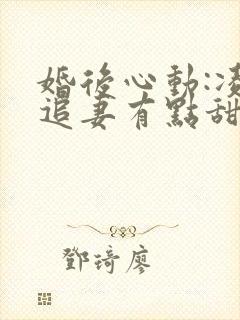 婚後心動:凌
追妻有點甜
鄧琦廖